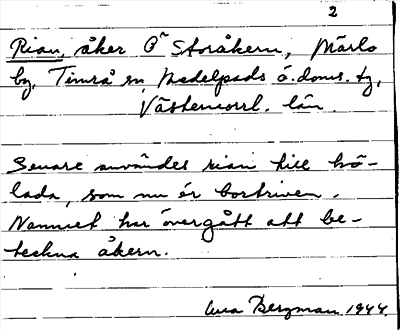 2
Rian, åker på Storåkern, Märlo
by, Timrå sn, Medelpads ö. doms. tg,
Västernorrl. län.
Senare användes rian till hö-
lada, som nu är bortriven.
Namnet har övergått att be-
teckna åkern.
Bergman 1944.